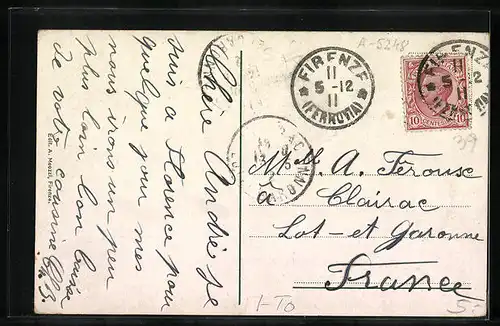 Chère André je
suis a Florence pour
quelque jour mes
nous irons un peu
plus loin bon baisé
de votre cousine
Edit. A. Firenze
FIRENZE
11
5 - 12
11
(FERROVIA)
A-5248
FIRENZE
11
5
10 CENT 10
39
Mell A. Férouse
à Clairac
Lot-et Garonne
France
1-TO
5.-